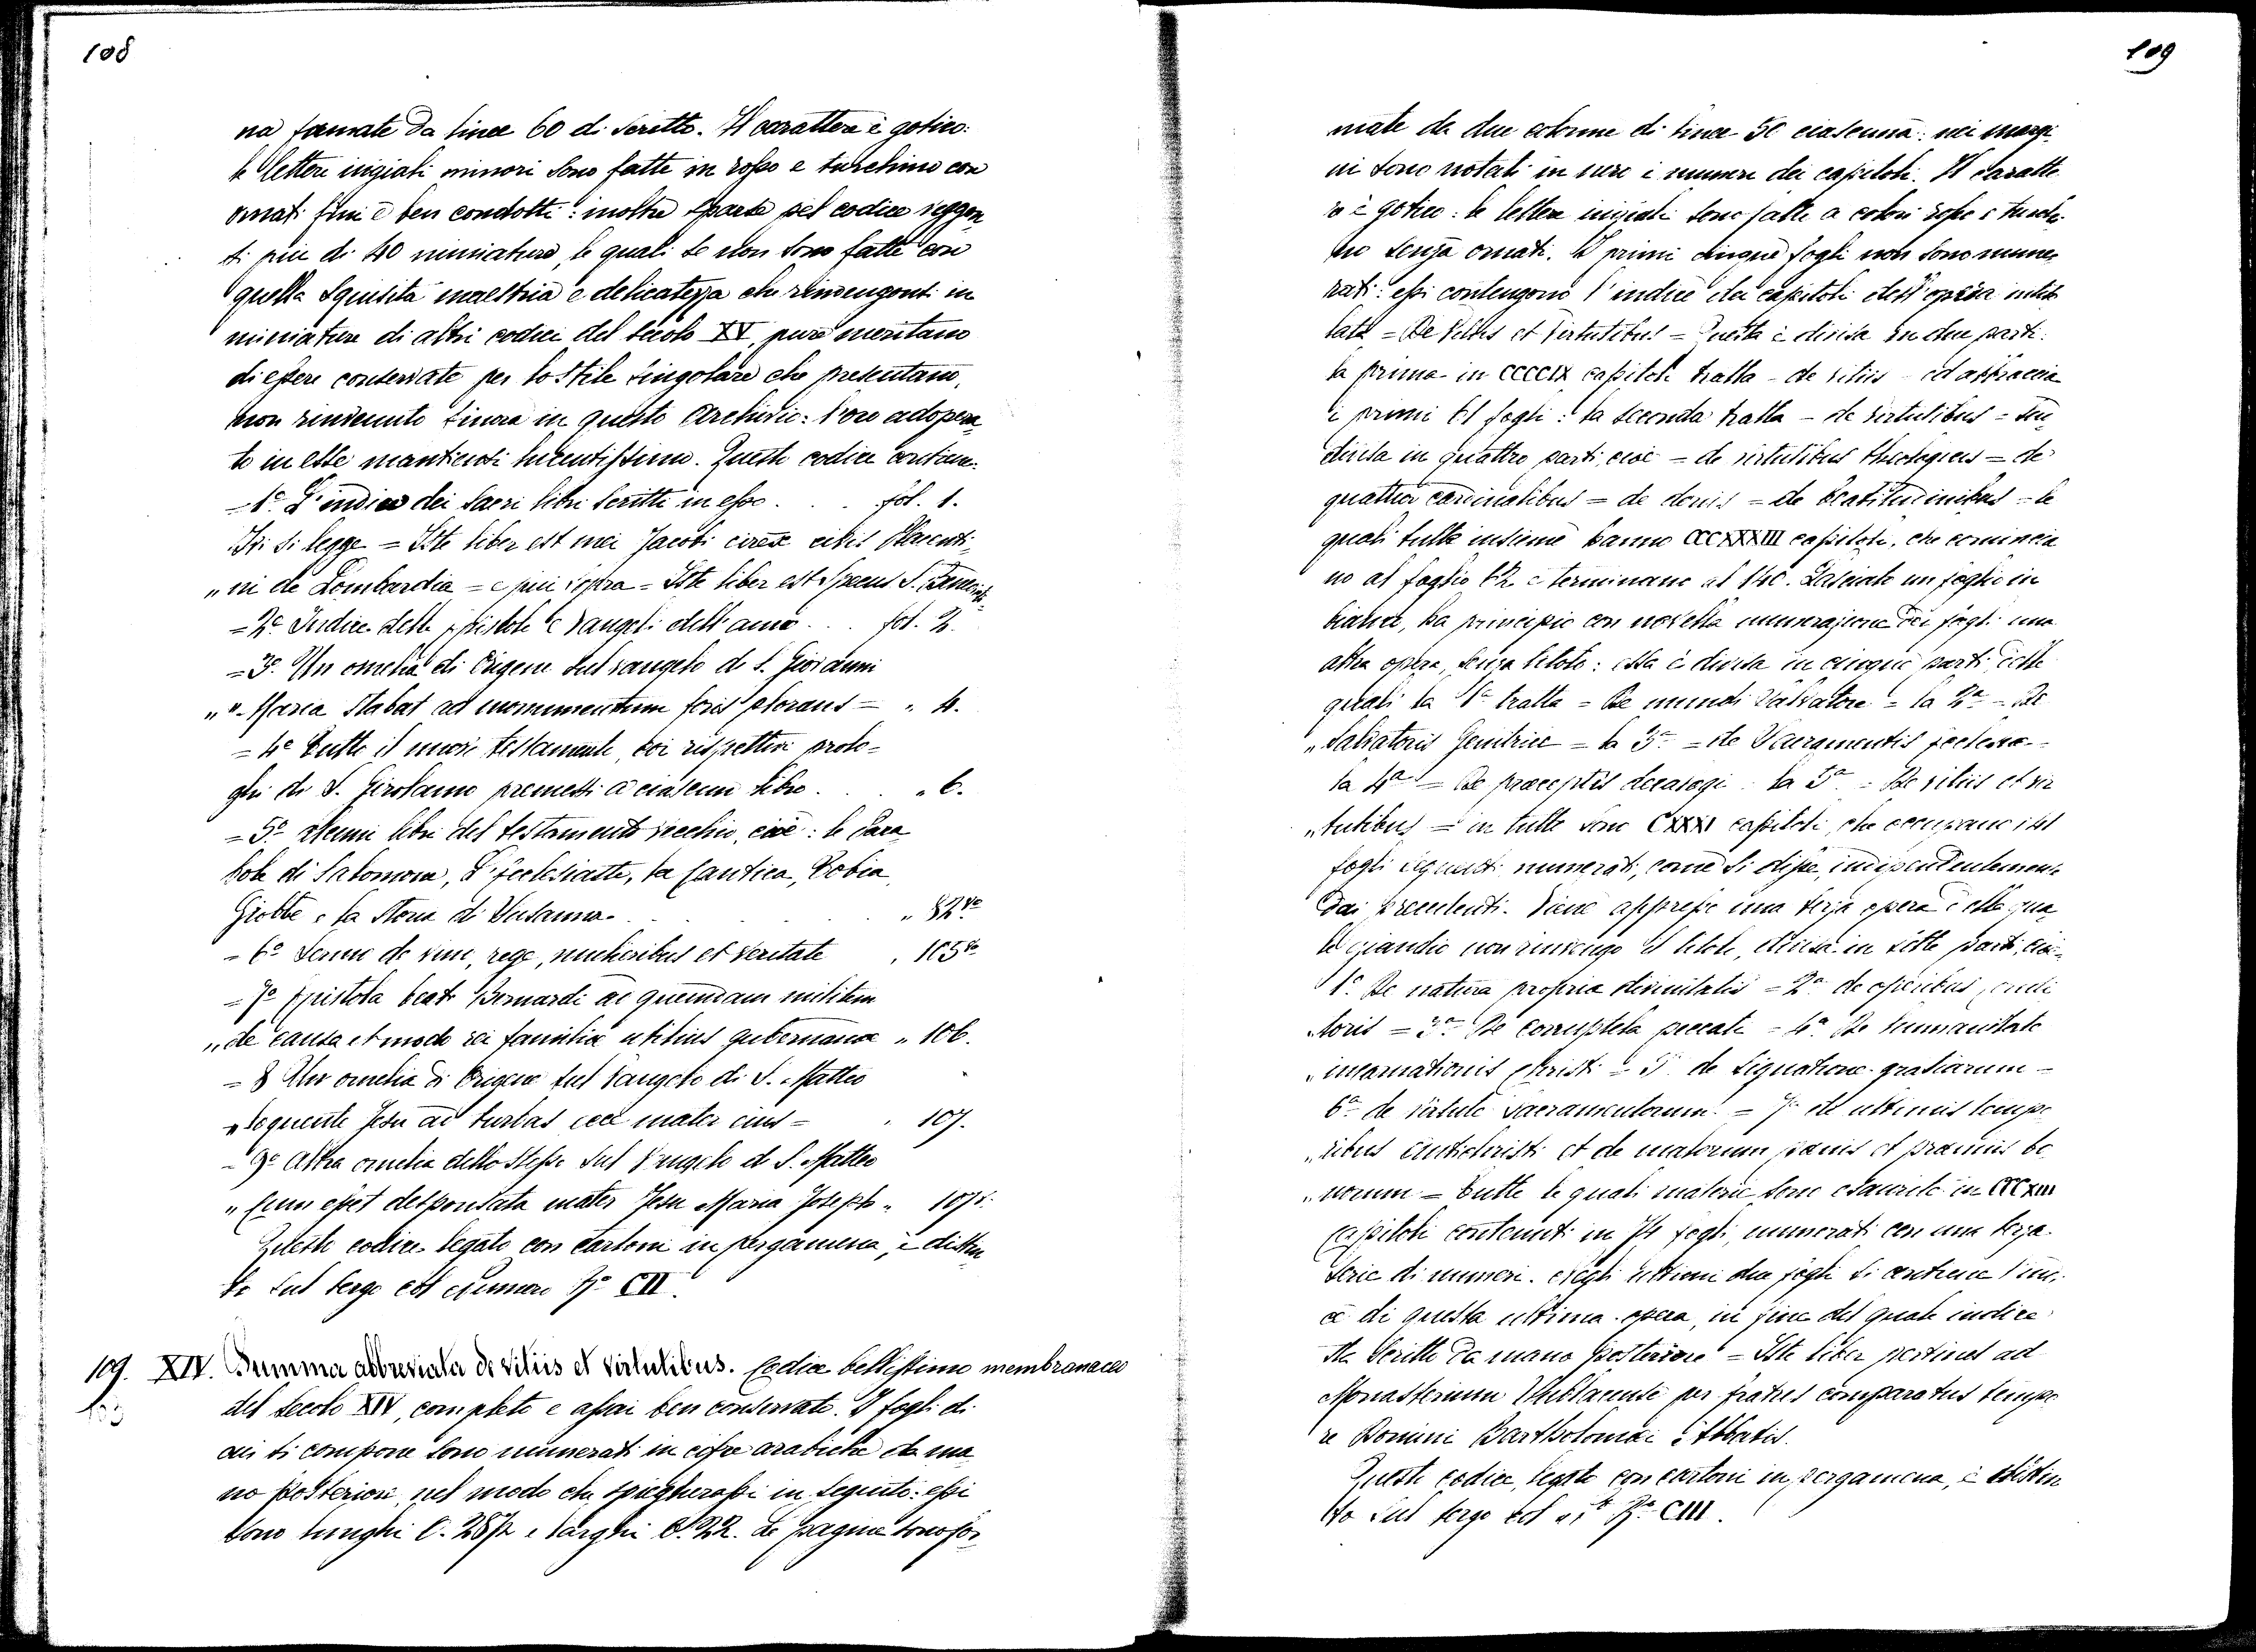 108
na formate da linee 60 di scritto. Il carattere è gotico:
le lettere iniziali minori sono fatte in rosso e turchino con
ornati fini e ben condotti: inoltre sparse pel codice veggon
si piu di 40 miniature, le quali se non sono fatte con
quella squisita maestria e delicatezza che rinvengonsi in
miniature di altri codici del secolo XV, pure meritano
di essere conservate per lo stile singolare che presentano,
non rinvenuto finora in questo Archivio: l'oro adopera
to in esse mantiensi lucentissimo. Questo codice contiene:
= 1º L'indice dei sacri libri scritti in esso . . . fol. 1.
Ivi si legge = Iste liber est mei Jacobi civis Placenti
„ ni de Lombardia = e piu sopra = Iste liber est Specus S. Benedicti
= 2º Indice delle epistole e vangeli dell'anno . . . fol. 2.
= 3º Un omelia di Origene sul vangelo di S. Giovanni
„ Maria stabat ad monumentum foris plorans = „ 4.
= 4º Tutto il nuovo testamento, coi rispettivi prolo=
ghi di S. Girolamo premessi a ciascun libro . . „ 6.
= 5º Alcuni libri del testamento vecchio, cioè: le Para
bole di Salomone, L'Ecclesiaste, la Cantica, Tobia,
Giobbe e la storia di Susanna . . . „ 82 vo
= 6º Sermo de vino, rege, mulieribus et veritate „ 105 vo
= 7º Epistola beati Bernardi ad quemdam militem
„ de causa et modo rei familiae utilius gubernanda „ 106.
= 8 Un omelia di Origene sul vangelo di S. Matteo
„ Loquente Jesu ad turbas ecce mater eius = „ 107.
= 9º Altra omelia dello stesso sul Vangelo di S. Matteo
„ Cum esset desponsata mater Jesu Maria Joseph „ 107 v.
Questo codice legato con cartoni in pergamena, è distin
to sul tergo col numero CII.
109. XIV. Summa abbreviata de vitiis et virtutibus. Codice bellissimo membranaceo
103
del secolo XIV, completo e assai ben conservato. I fogli di
cui si compone sono numerati in cifre arabiche da ma
no posteriore, nel modo che spiegherassi in seguito: essi
sono lunghi C. 28½ e larghi C. 22. Le pagine sono for
109
mate da due colonne di linee 50 ciascuna: nei margi
ni sono notati in nero i numeri dei capitoli. Il caratte
re è gotico: le lettere iniziali sono fatte a colori rosso e turchi
no senza ornati. I primi cinque fogli non sono nume
rati: essi contengono l'indice dei capitoli dell'opera intito
lata = De vitiis et virtutibus = Questa è divisa in due parti:
la prima in CCCCIX capitoli tratta = de vitiis = ed abbraccia
i primi 61 fogli: la seconda tratta = de virtutibus = sud
divisa in quattro parti, cioè = de virtutibus theologicis = de
quattuor cardinalibus = de donis = de beatitudinibus = le
quali tutte insieme hanno CCCXXXIII capitoli, che comincia
no al foglio 62 e terminano al 140. Lasciato un foglio in
bianco, ha principio con novella numerazione dei fogli una
altra opera, senza titolo: essa è divisa in cinque parti, delle
quali la 1ª tratta = De mundi Salvatore = la 2ª = De
„ Salvatoris Genitrice = la 3ª = de Sacramentis ecclesiae =
la 4ª = De praeceptis decalogi = la 5ª = De vitiis et vir
„ tutibus = in tutte sono CXXXI capitoli, che occupano i
fogli seguenti numerati, come si disse, indipendentemente
dai precedenti. Viene appresso una terza opera della qua
le eziandio non rinvengo il titolo, divisa in sette parti, cioè
1ª De natura propria divinitatis = 2ª de operibus condi
„ toris = 3ª De corruptela peccati = 4ª De humanitate
„ incarnationis Christi = 5ª de signatione gratiarum =
6ª de virtute sacramentorum = 7ª de ultimis tempo
„ ribus Antichristi et de malorum poenis et praemiis bo
„ norum = tutte le quali materie sono esaurite in CCCXIII
capitoli contenuti in 74 fogli, numerati con una terza
serie di numeri. Negli ultimi due fogli si contiene l'indi
ce di questa ultima opera, in fine del quale indice
sta scritto da mano posteriore = Iste liber pertinet ad
Monasterium Sublacense per fratres comparatus tempo
re Domini Bartholomaei Abbatis.
Questo codice, legato con cartoni in pergamena, è distin
to sul tergo col CIII.